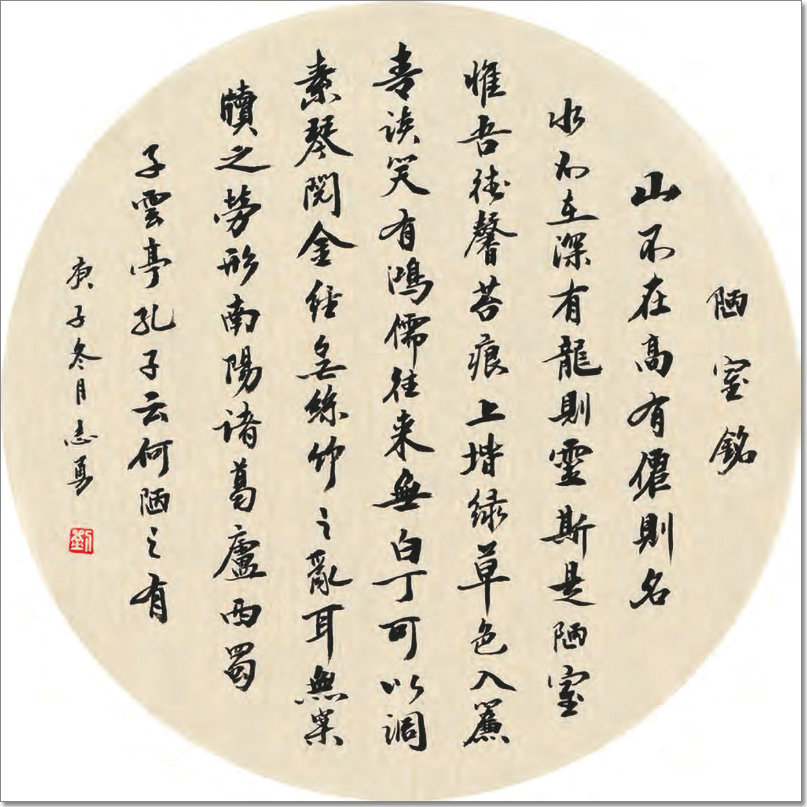 陋室銘
山不在高有僊則名
水不在深有龍則靈斯是陋室
惟吾德馨苔痕上堦緑草色入簾
青談笑有鴻儒往来無白丁可以調
素琴閲金経無絲竹之亂耳無案
牘之勞形南陽諸葛廬西蜀
子雲亭孔子云何陋之有
庚子冬月志勇